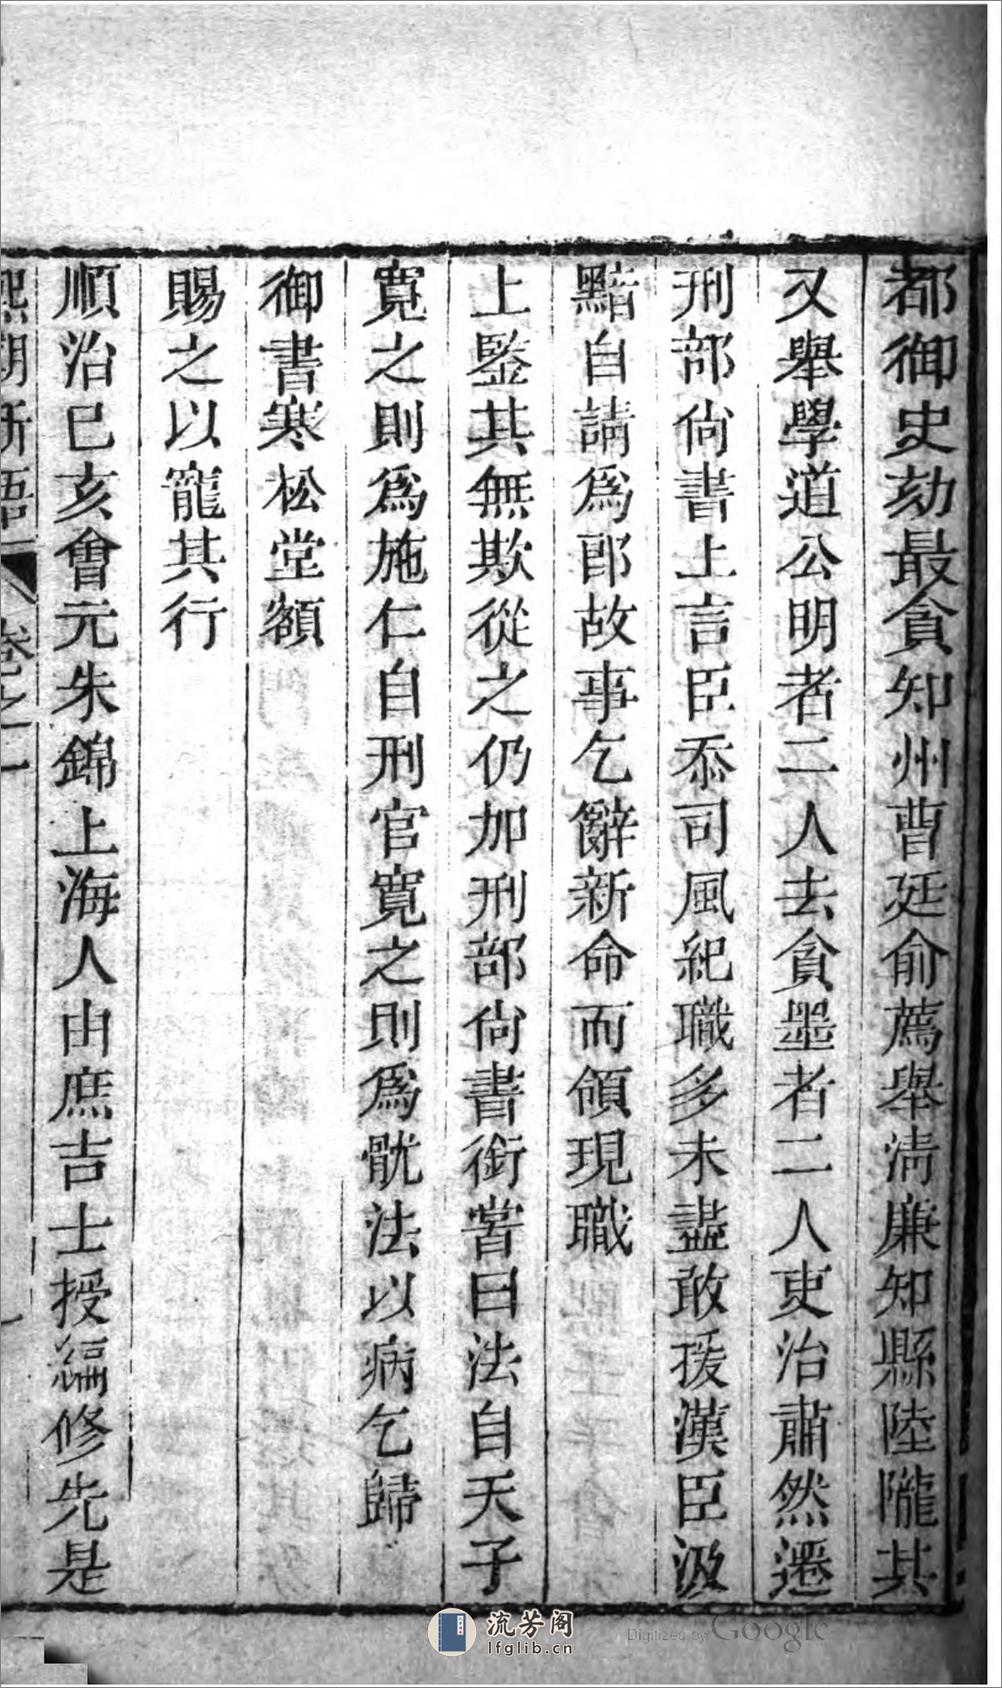 都御史劾最貪知州曹廷俞薦舉淸廉知縣陸隴其
又舉學道公明者二人去貪墨者二人吏治肅然遷
刑部尙書上言臣忝司風紀職多未盡敢援漢臣汲
黯自請爲郎故事乞辭新命而領現職
上鍳其無欺從之仍加刑部尙書銜嘗曰法自天子
寛之則爲施仁自刑官寛之則爲骫法以病乞歸
御書寒松堂額
賜之以寵其行
順治已亥會元朱錦上海人由庶吉士授編修先是
熙朝新語 卷之一
流芳阁
lfglib.cn
Digitized by Google